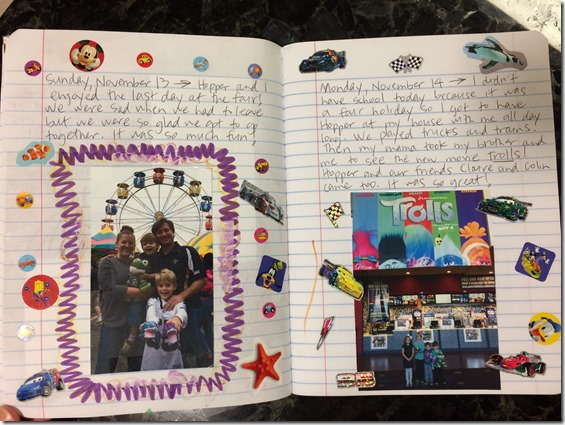 Sunday, November 13 → Hopper and I
enjoyed the last day at the fair!
We were sad when we had to leave
but we were so glad we got to go
together. It was so much fun!
Monday, November 14 → I didn't
have school today because it was
a fair holiday so I got to have
Hopper at my house with me all day
long. We played trucks and trains.
Then my mama took my brother and
me to see the new movie Trolls!
Hopper and our friends Claire and Colin
came too. It was so great!
Trolls